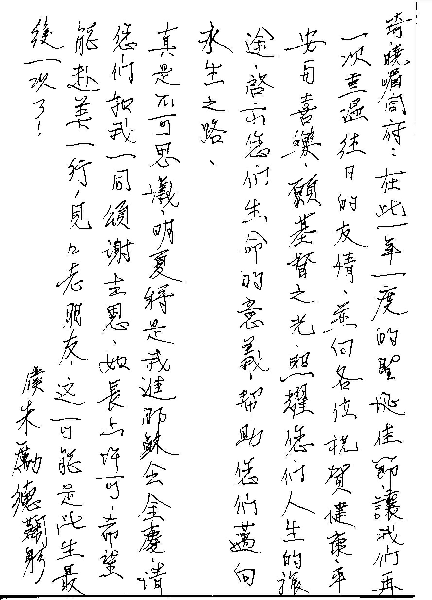 琦曉嵋闔府：在此一年一度的聖誕佳節讓我們再
一次重溫往日的友情、並向各位祝賀健康、平
安與喜樂、願基督之光、照耀您們人生的旅
途、啓示您們生命的意義、幫助您們邁向
永生之路、
真是不可思議、明夏將是我進耶穌会金慶、請
您們和我一同頌謝主恩、如長上許可、希望
能赴美一行、見見老朋友、這可能是此生最
後一次了！
僕朱勵德鞠躬